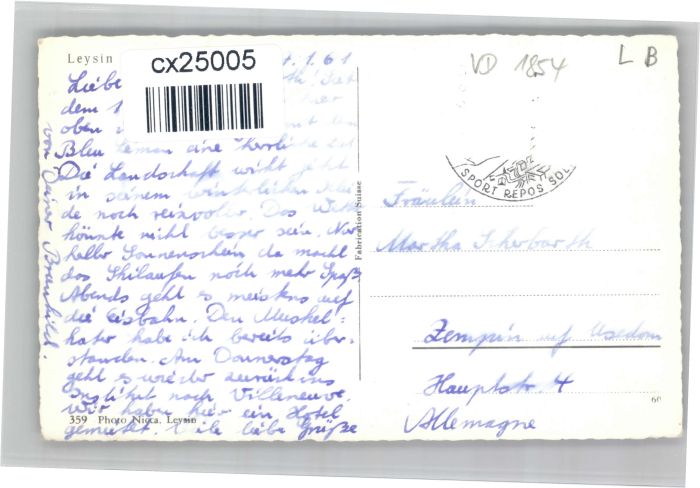 Leysin
cx25005
VD 1854
L B
.1.61
Liebe
dem 1
oben
Bleu Léman eine herrliche Zeit
Die Landschaft wirkt jetzt
in seinem winterlichen Klei
de noch reizvoller. Das Wetter
könnte nicht besser sein. Nur
heller Sonnenschein da macht
das Skilaufen noch mehr Spaß
Abends geht es meistens auf
die Eisbahn. Den Muskel=
kater habe ich bereits über-
standen. Am Donnerstag
geht es wieder zurück ins
Institut nach Villeneuve.
Wir haben hier ein Hotel
gemietet. Viele liebe Grüße
von Deiner Braunhild.
359 Photo Nicca, Leysin
Fabrication Suisse
SPORT REPOS SOL
Fräulein
Martha Scherbarth
Zempin auf Usedom
Hauptstr. 4
Allemagne
60